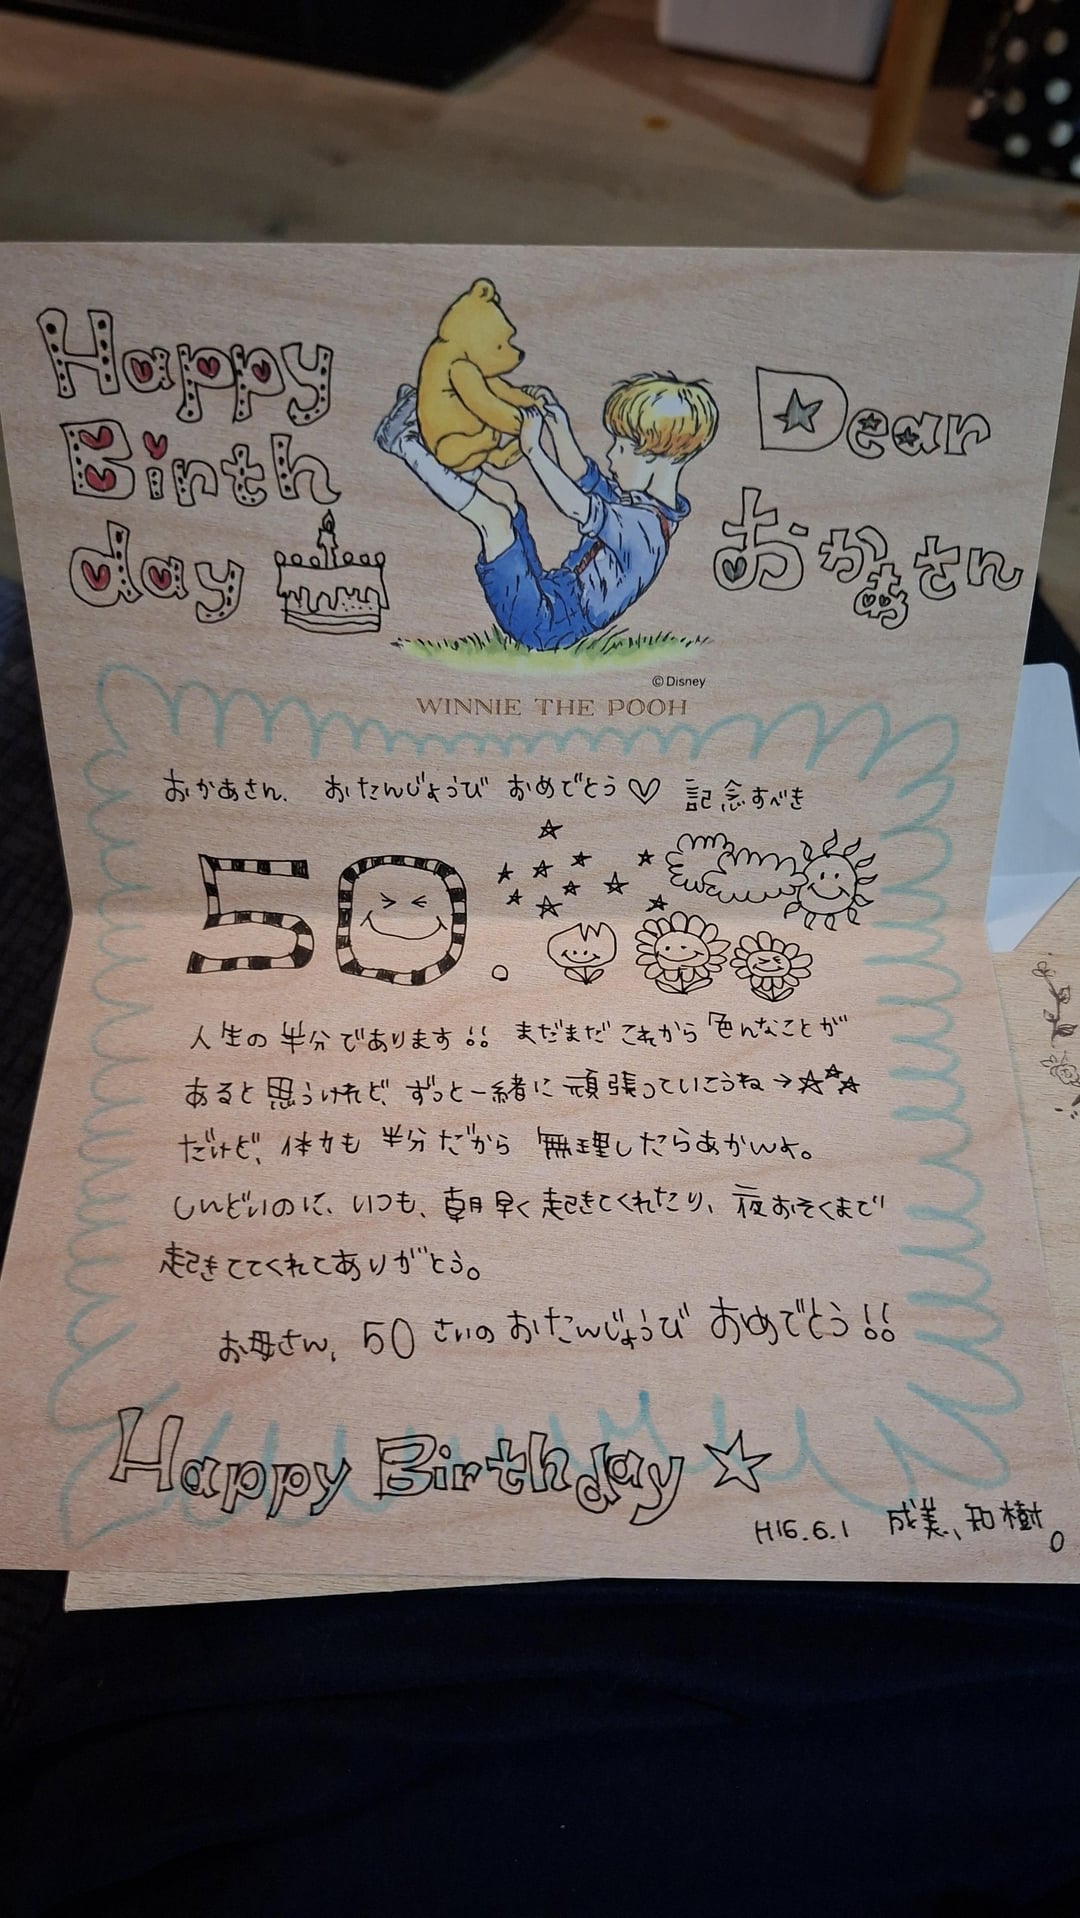 Happy
Birth
day
Dear
おかあさん
©Disney
WINNIE THE POOH
おかあさん、おたんじょうび おめでとう♡ 記念すべき
50。
人生の半分であります!! まだまだこれから色んなことが
あると思うけれど、ずっと一緒に頑張っていこうね→☆☆☆
だけど、体力も半分だから 無理したらあかんよ。
しんどいのに、いつも、朝早く起きてくれたり、夜おそくまで
起きててくれてありがとう。
お母さん、50さいのおたんじょうび おめでとう!!
Happy Birthday ☆
H16.6.1 成美、知樹。